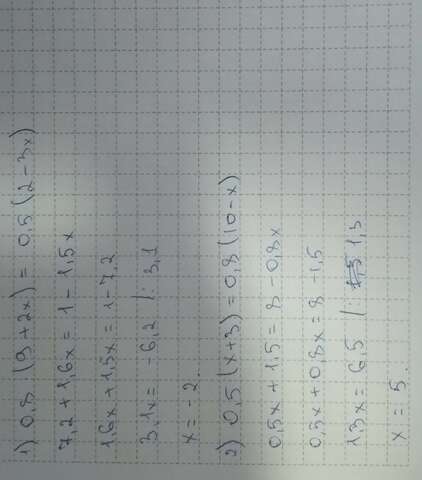 1) 0,8 (9 + 2x) = 0,5 (2 - 3x)
7,2 + 1,6x = 1 - 1,5x
1,6x + 1,5x = 1 - 7,2
3,1x = -6,2 |: 3,1
x = -2.
2) 0,5 (x+3) = 0,8 (10-x)
0,5x + 1,5 = 8 - 0,8x
0,5x + 0,8x = 8 - 1,5
1,3x = 6,5 |: 1,3
x = 5.